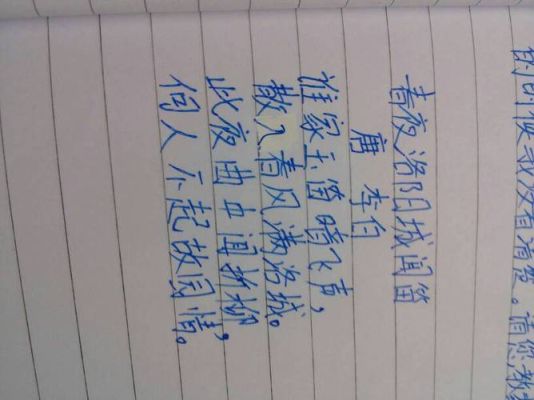 的时候我没有。请您教
春夜洛阳城闻笛
唐 李白
谁家玉笛暗飞声，
散入春风满洛城。
此夜曲中闻折柳，
何人不起故园情。